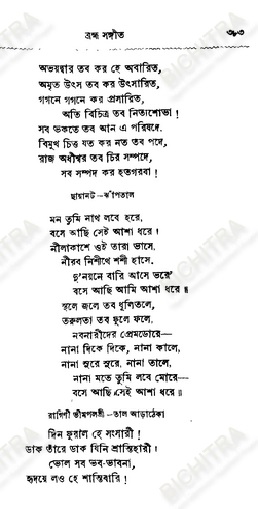 ব্রহ্ম সঙ্গীত ৩৮৩
অভয়দ্বার তব কর হে অবারিত,
অমৃত উৎস তব কর উৎসারিত,
গগনে গগনে কর প্রসারিত,
অতি বিচিত্র তব নিত্যশোভা !
সব ভকতে তব আন এ পরিষদে,
বিমুখ চিত্ত যত কর নত তব পদে,
রাজ অধীশ্বর তব চির সম্পদে,
সব সম্পদ কর হতগরবা !
ছায়ানট–ঝাঁপতাল
মন তুমি নাথ লবে হরে,
বসে আছি সেই আশা ধরে ।
নীলাকাশে ওই তারা ভাসে,
নীরব নিশীথে শশী হাসে,
দু'নয়নে বারি আসে ভরে'
বসে আছি আমি আশা ধরে ॥
স্থলে জলে তব ধূলিতলে,
তরুলতা তব ফুলে ফলে,
নরনারীদের প্রেমডোরে—
নানা দিকে দিকে, নানা কালে,
নানা সুরে সুরে, নানা তালে,
নানা মতে তুমি লবে মোরে—
বসে আছি সেই আশা ধরে ॥
রাগিণী ভীমপলশ্রী–তাল আড়াঠেকা
দিন ফুরাল হে সংসারী !
ডাক তাঁরে ডাক যিনি শ্রান্তিহারী ।
ভোল সব ভব-ভাবনা,
হৃদয়ে লও হে শান্তিবারি !
BICHITRA